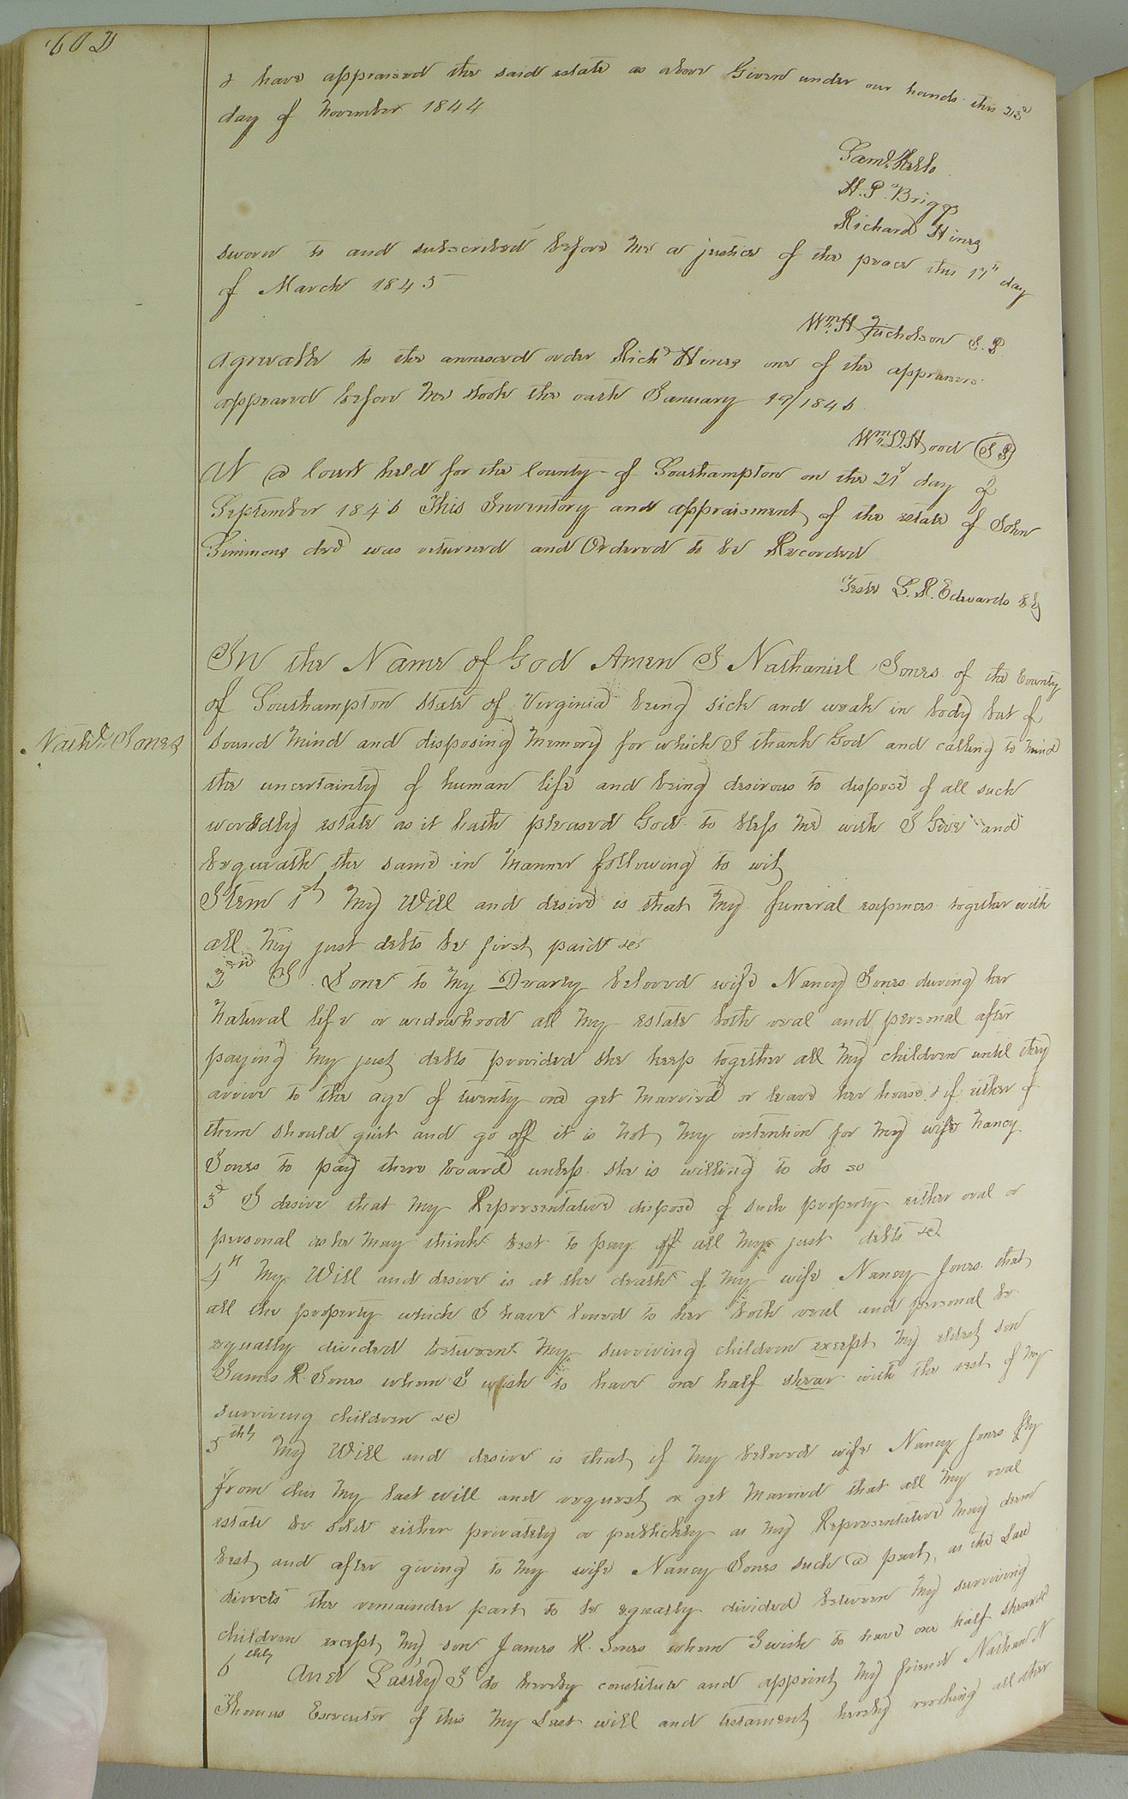 602
& have appraised the said estate as above Given under our hands this 23d
day of November 1844
Saml Kello
H. P. Briggs
Richard Hines
sworn to and subscribed before me a justice of the peace this 17th day
of March 1845
Wm H Nicholson J. P
Agreeable to the annexed order Richd Hines one of the appraisers
appeared before me & took the oath January 19/1846
Wm D. Hood J P
At a Court held for the County of Southampton on the 21st day of
September 1846 This Inventory and appraisment of the estate of John
Simmons decd was returned and Ordered to be Recorded
Teste L. R. Edwards Clk
In the Name of God Amen I Nathaniel Jones of the County
of Southampton State of Virginia being sick and weak in body but of
Nathl Jones
sound mind and disposing memory for which I thank God and calling to mind
the uncertainty of human life and being desirous to dispose of all such
worldly estate as it hath pleased God to bless me with I Give and
bequeath the same in manner following to wit
Item 1st My Will and desire is that my funeral expences together with
all my just debts be first paid &c
2nd I Lone to my Dearly beloved wife Nancy Jones during her
natural life or widowhood all my estate both real and personal after
paying my just debts provided she keep together all my children until they
arrive to the age of twenty one get married or leave her house, & if either of
them should quit and go off it is not my intention for my wife Nancy
Jones to pay there board unless she is willing to do so
3d I desire that my Representative dispose of such property either real or
personal as he may think best to pay off all my just debts &c
4th My Will and desire is at the death of my wife Nancy Jones that
all the property which I have loned to her both real and personal be
equally divided between my surviving children except my eldest son
James R. Jones whom I wish to have one half shear with the rest of my
surviving children &c
5thly My Will and desire is that if my beloved wife Nancy Jones fly
from this my last will and request or get married that all my real
estate be sold either privately or publickly as my Representative may deem
best and after giving to my wife Nancy Jones such a part, as the Law
directs the remainder part to be equally divided between my surviving
children except my son James R. Jones whom I wish to have one half sheare
6thly And Lastly I do hereby constitute and appoint my friend Nathan N
Thomas Executor of this my Last will and testament hereby revoking all other